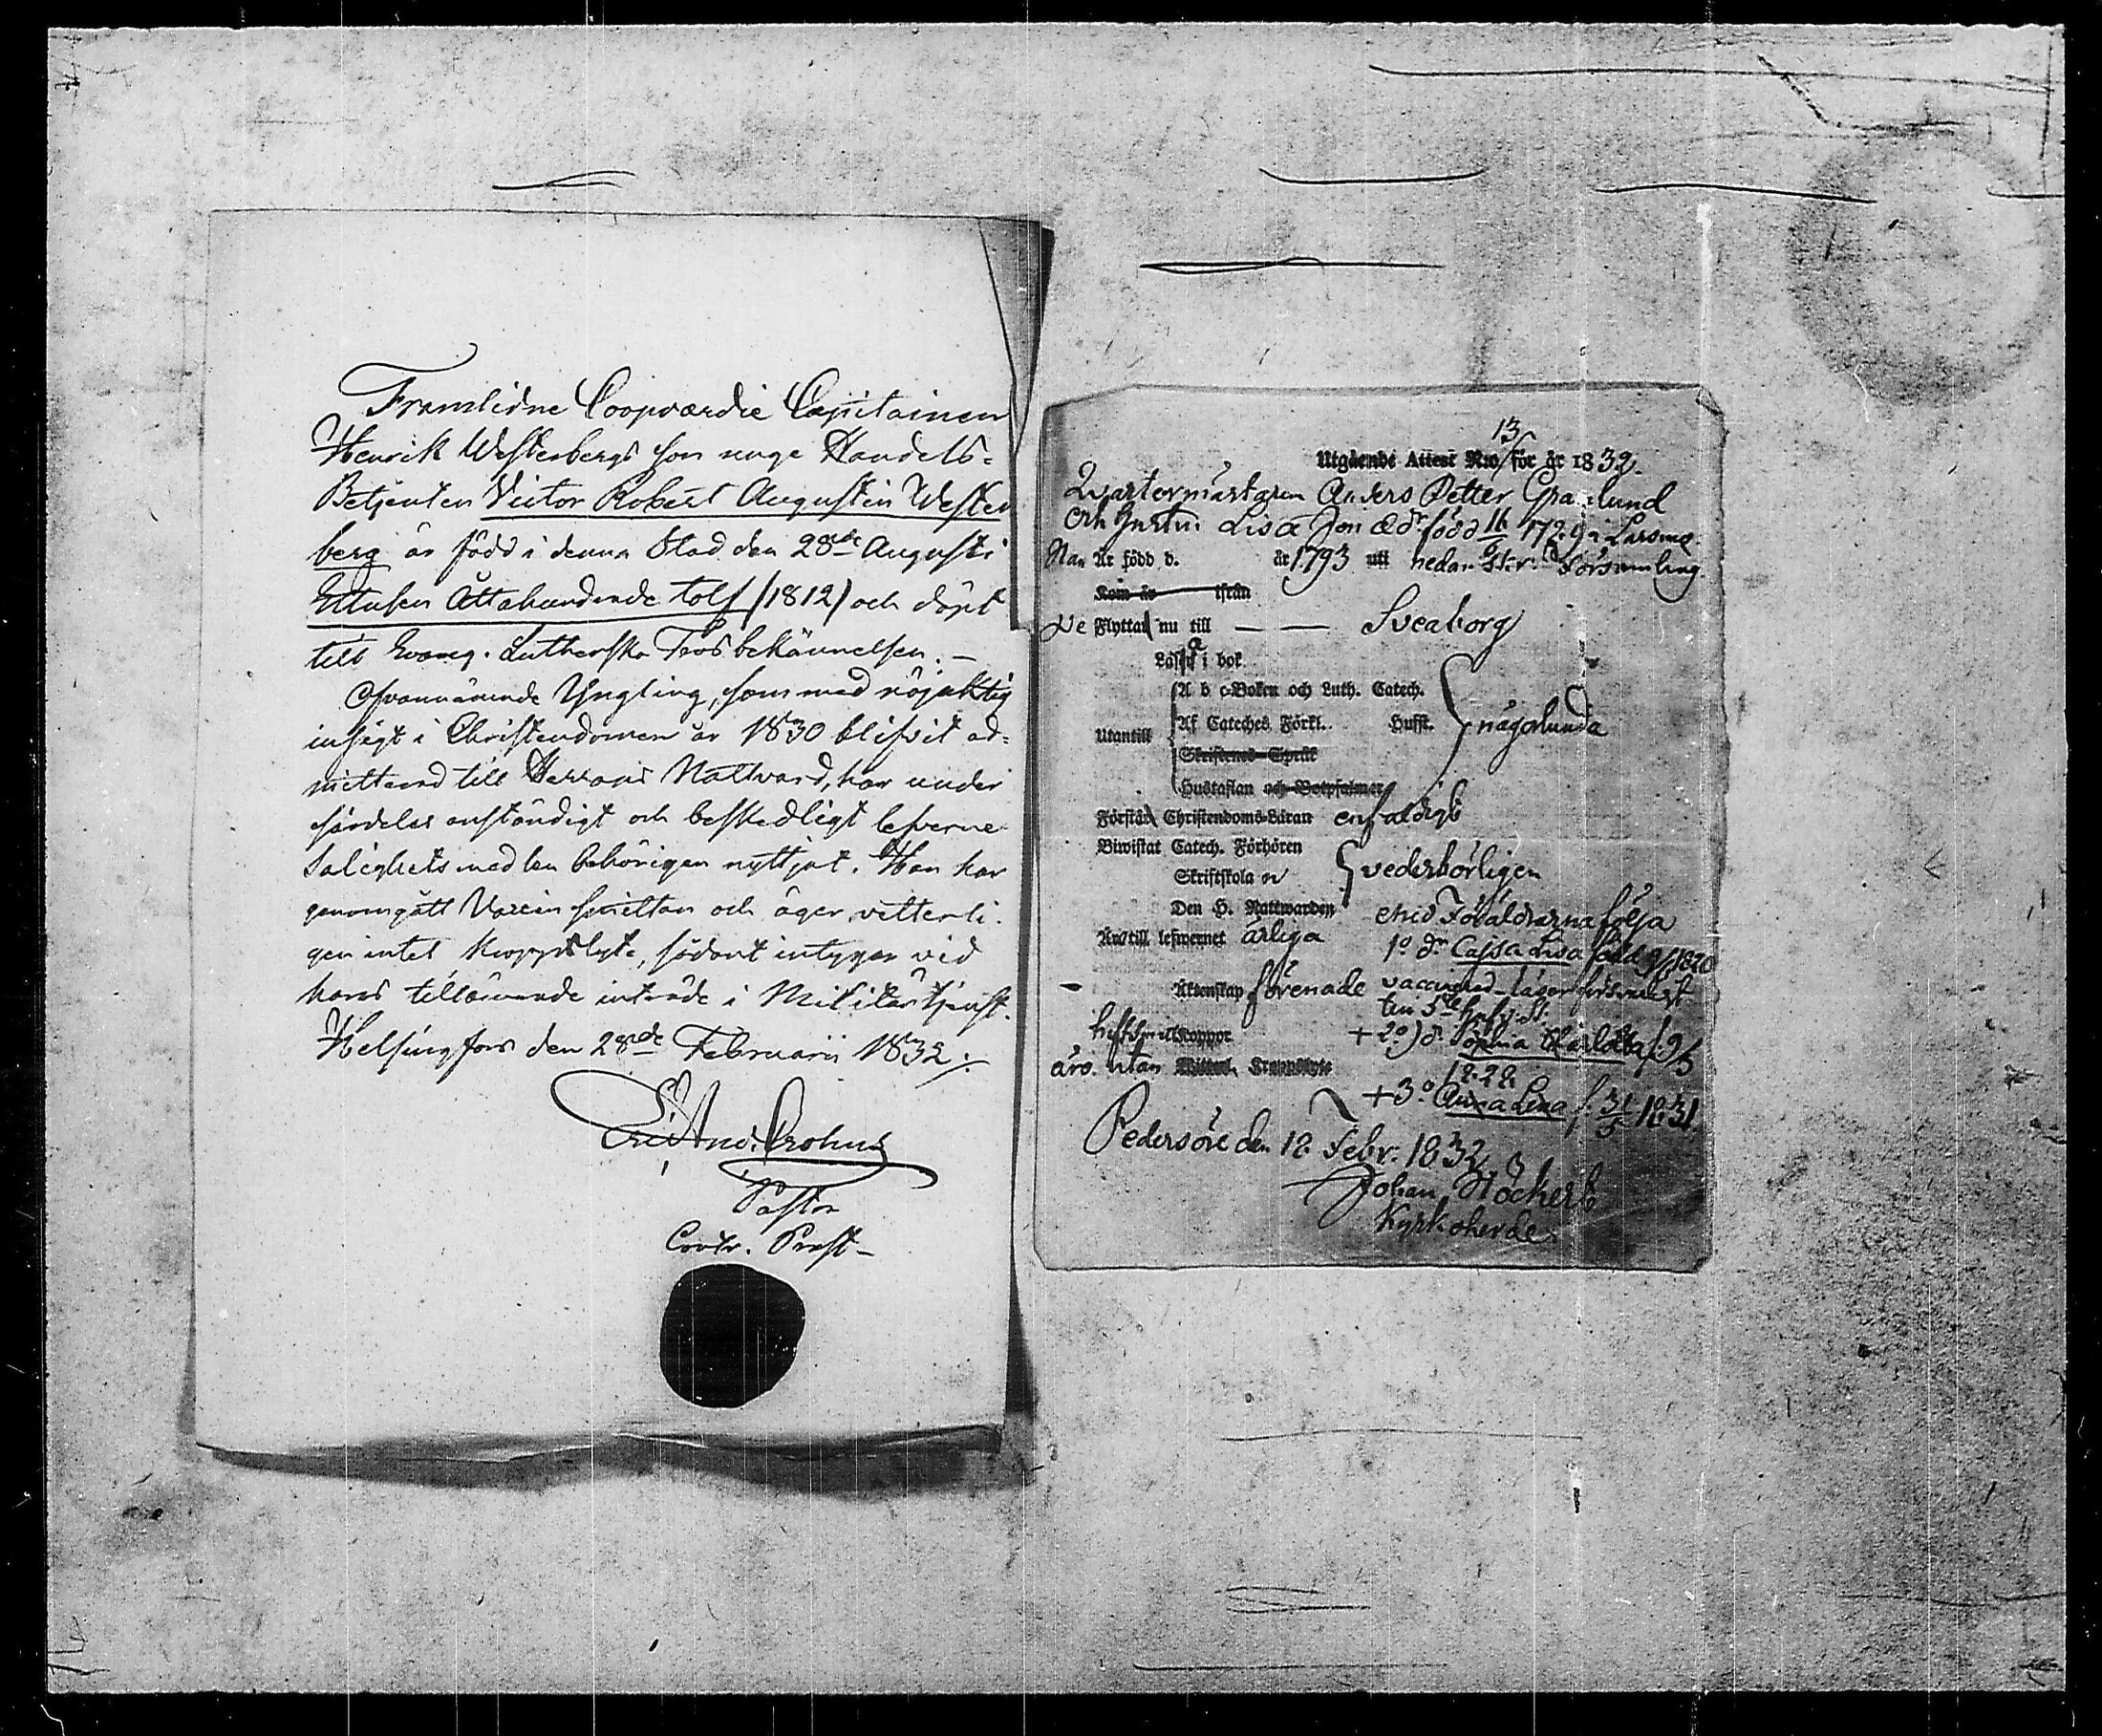 Framlidne Coopværdie Capitainen
Henrik Westerbergs son unge Handels=
Betjenten Victor Robert Augustin Wester
berg är född i denna Stad den 28de Augusti
Ettusen Åttahundrade tolf (1812) och döpt
till Evang. Lutherska Trosbekännelsen. —
Ofvannämnde Yngling, som med nöjaktig
insigt i Christendomen år 1830 blifvit ad=
mitterad till Herrans Nattvard, har under
särdeles anständigt och beskedligt lefverne
Salighetsmedlen behörigen nyttjat. Han har
genomgått Vaccin smittan och äger vetterli.
gen intet kroppslyte, sådant intygas vid
hans tillärnade inträde i Militär tjenst.
Helsingfors den 28de Februarii 1832.
And. Crohns
Pastor
Contr. Prost
13
Utgående Attest N:o för år 1832.
Qvartermästaren Anders Petter Granlund
och hustru Lisa född 16 i Larsmo.
Han Är född d. år 1793 uti nedanskr. Församling.
Kom år ifrån
De Flyttar nu till — — Sveaborg
Läsa i bok
A b c-Boken och Luth. Catech.
Utantill Af Cateches. Förkl. Hufst. någorlunda
Skriftenes Språk
Hustaflan och Botpsalmer
Förstår Christendoms-Läran enfaldigt
Biwistat Catech. Förhören
Skriftskola vederbörligen
Den H. Nattwarden
med Föräldrarna följa
Äro till lefwernet ärliga
1o dr Cajsa Lisa född 1820
Äktenskap förenade vaccinerad
Koppor
+ 2o) dr Sophia Charlotta f. 9/5
äro utan Witterl. Kroppslyte
1822
+ 3o Anna Lena f. 31/5 1831.
Pedersöre den 18 Febr. 1832
Johan Höckert
Kyrkoherde